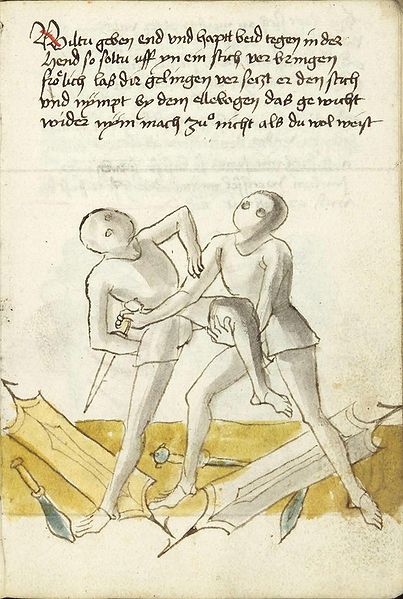 Wiltu geben end vnd haptt beid tegen in der
Hend so soltu uff yn ein stich ver bringen
frölich las dir gelingen ver setzt er den stich
vnd nÿmpt by dem ellebogen das ge wicht
wider nÿm mach zuͦ nicht als du wol weist